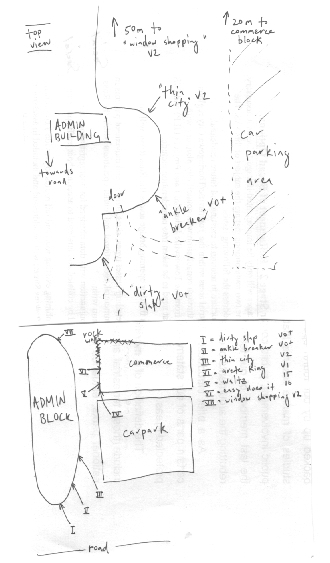 top
view
50m to
"window shopping"
V2
20m to
commerce
block
"thin
city" V2
ADMIN
BUILDING
towards
road
car
parking
area
door
"ankle
breaker" V0+
"dirty
slap" V0+
VII
rock
wall
commerce
VI
V
IV
ADMIN
BLOCK
carpark
III
II
I
road
I = dirty slap V0+
II = ankle breaker V0+
III = thin city V2
IV = arete king V1
V = waltz 15
VI = easy does it 10
VII = window shopping V2